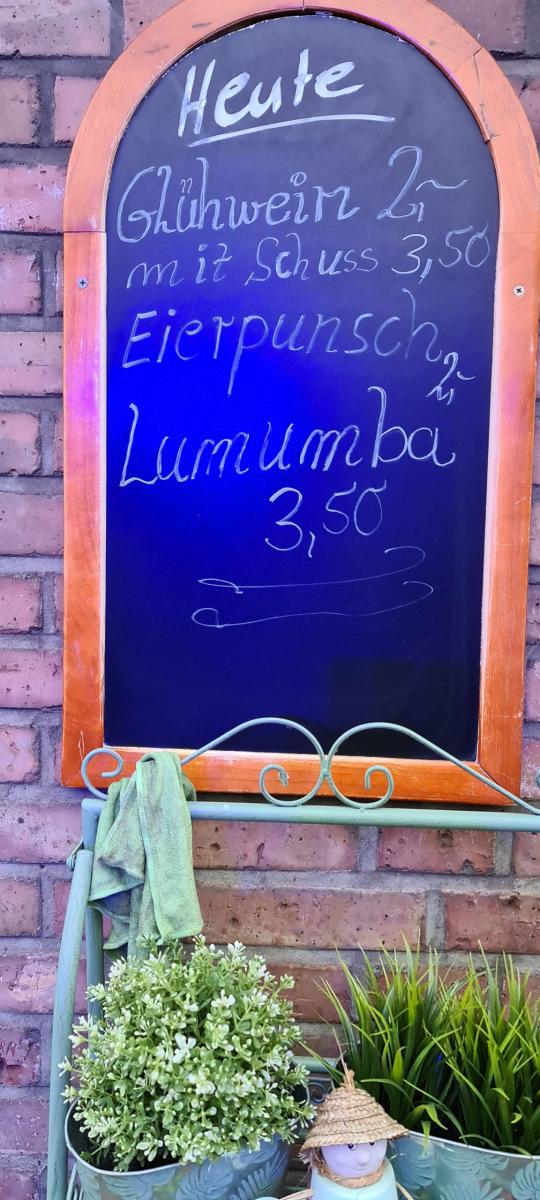 Heute
Glühwein 2,-
mit Schuss 3,50
Eierpunsch
2,-
Lumumba
3,50